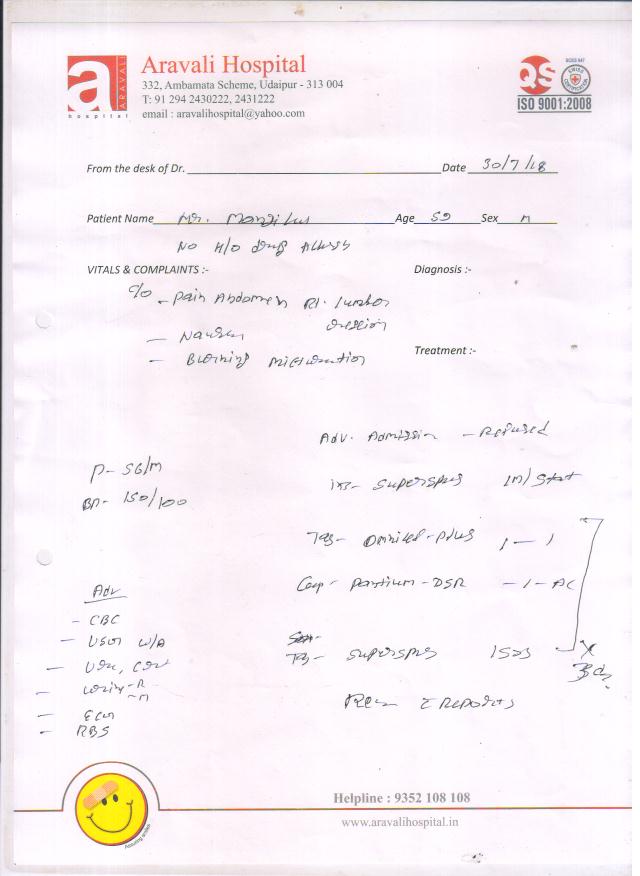 a
ARAVALI
hospital
Aravali Hospital
332, Ambamata Scheme, Udaipur - 313 004
T: 91 294 2430222, 2431222
email : aravalihospital@yahoo.com
QS
SWISS CERTIFICATION
ISO 9001:2008
From the desk of Dr. Date 30/7/18
Patient Name Mr. Age 59 Sex M
No H/O drug
VITALS & COMPLAINTS :- Diagnosis :-
C/O - Pain Abdomen Rt. Lumbar
- Nausea
- Burning Micturation
Treatment :-
Adv. Admission - Refused
P- 56/M
BP- 150/100
Superspas IM/Stat
Tab- 1 - 1
Cap- -DSR - 1 - AC
Adv
- CBC
- USG W/A
Tab- Superspas 1SOS
- Urine-R
-M
- ECG
- RBS
Reports
Helpline : 9352 108 108
www.aravalihospital.in
Assuring smiles